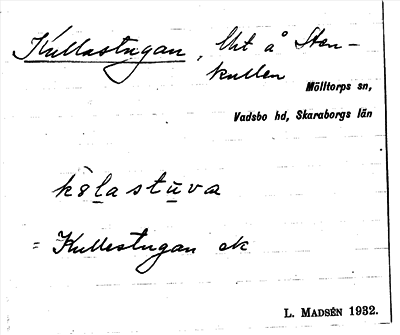 Kullastugan, lht å Sten-
kullen
Mölltorps sn,
Vadsbo hd, Skaraborgs län
kölastuva
= Kullestugan ek
L. MADSÉN 1932.